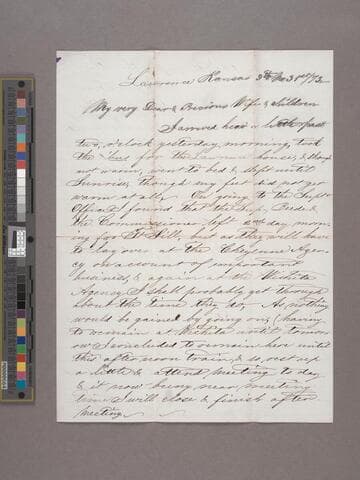 Lawrence Kansas 3d Mo 31st/72
My very Dear & Precious Wife & children
I arrived hear a little past
two, o'clock yesterday, morning, took
the for the house, & though
not warm, went to bed & slept until
Sunrise, though my feet did not get
warm at all. On going to the Supt's
Office, found the &
the Commissioner left day morn
ing for Ft Sill, but as they will have
to lay over at the Cheyenne Agen
cy on account of important
business, & again at the Wichita
Agency I shall probably get through
about the time they do, As nothing
would be gained by going on, (having
to remain at until tomor
row I concluded to remain here until
this afternoon train, & so, rest up
a little & attend meeting to day
& it now being near meeting
time I will close & finish after
meeting